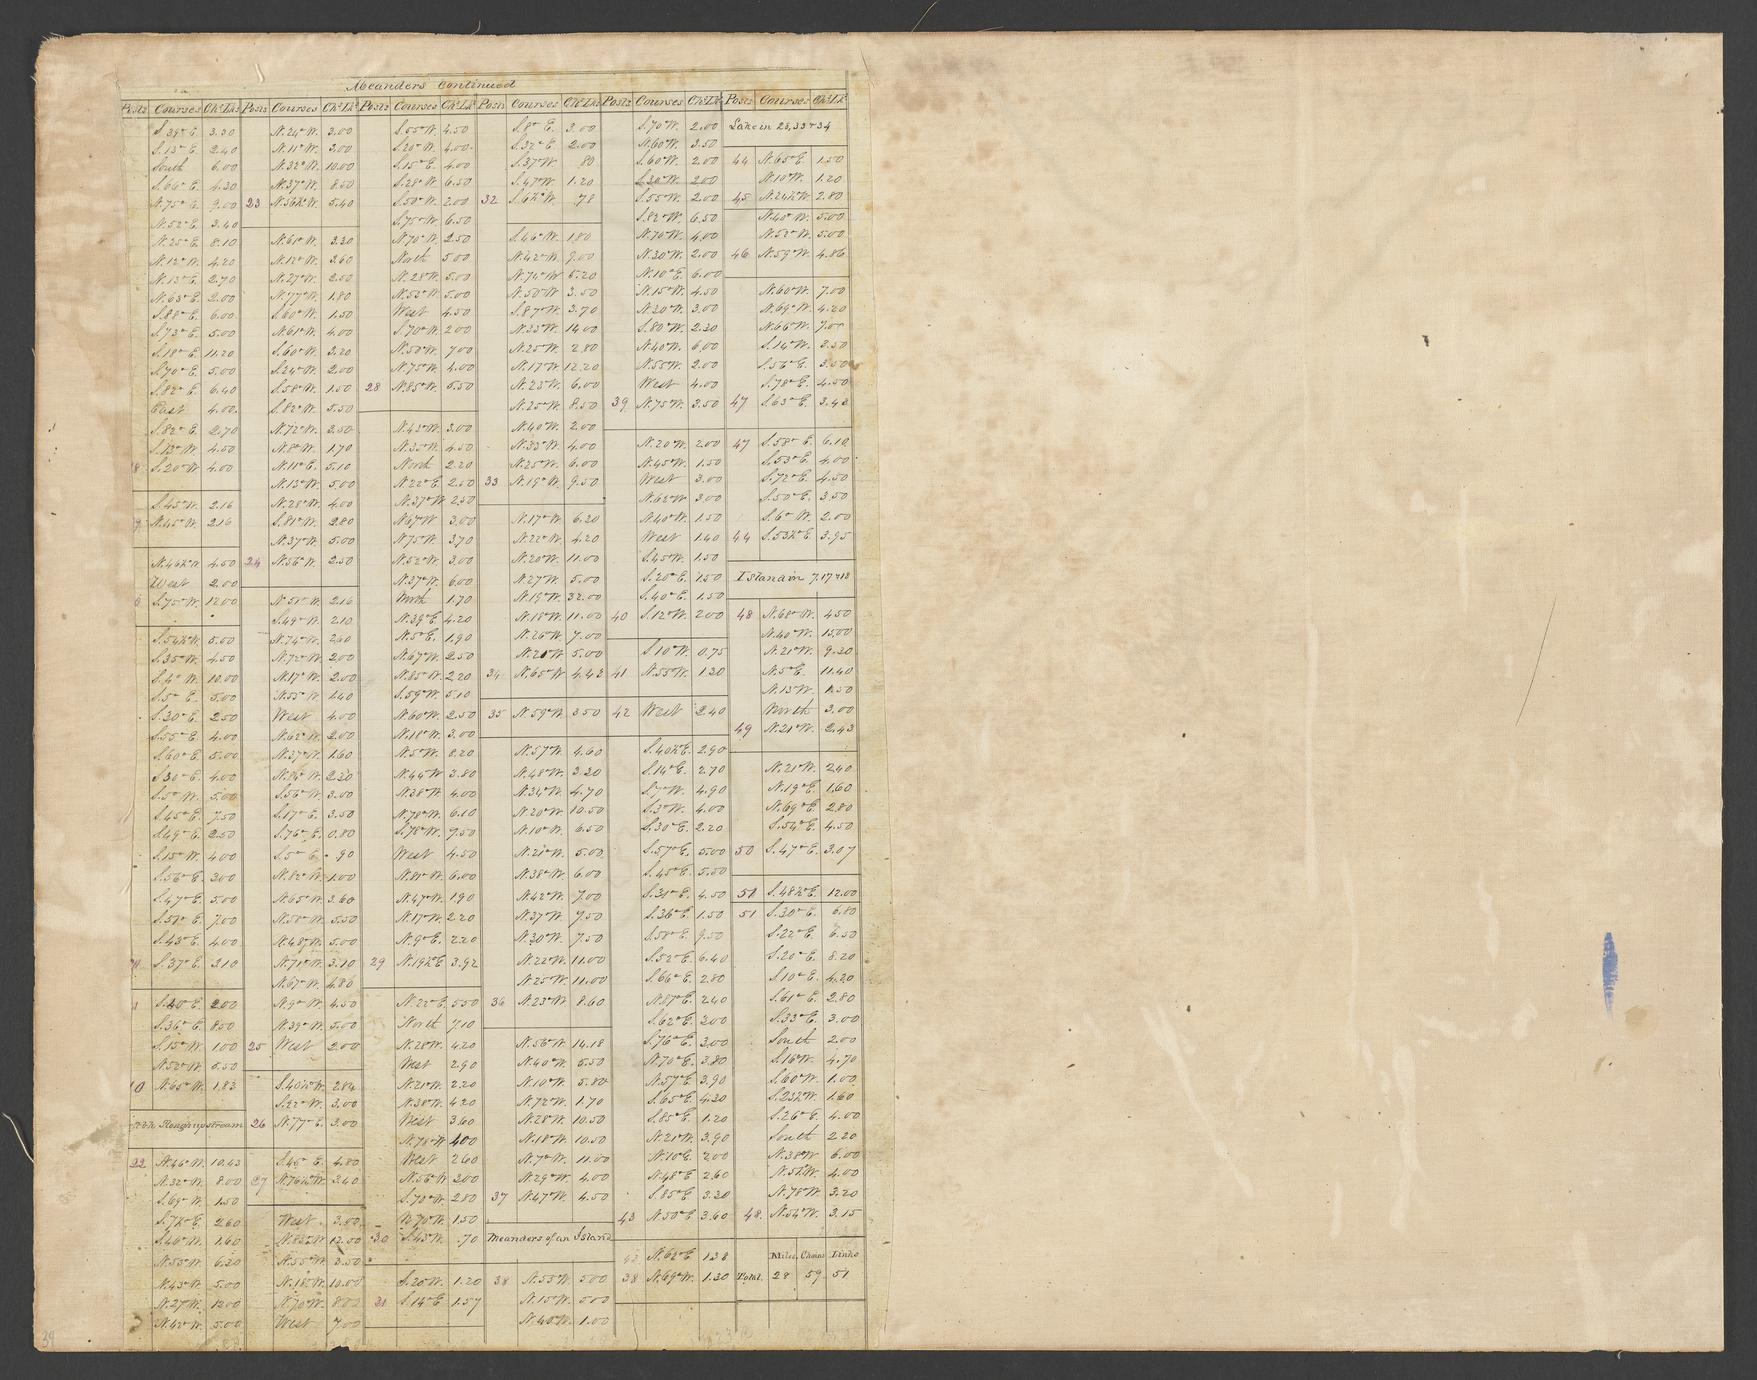 Meanders Continued
Posts Courses Chs Lks Posts Courses Chs Lks Posts Courses Chs Lks Posts Courses Chs Lks Posts Courses Chs Lks Posts Courses Chs Lks
S.39°E. 3.30
S.13°E. 2.40
South 6.00
S.66°E. 4.30
N.75°E. 9.00
N.52°E. 3.40
N.25°E. 8.10
N.12°W. 4.20
N.13°E. 2.70
N.63°E. 2.00
S.88°E. 6.00
S.73°E. 5.00
S.18°E. 11.20
S.70°E. 5.00
S.82°E. 6.40
East 4.00
S.82°E. 2.70
S.13°W. 4.50
8 S.20°W. 4.00
S.45°W. 2.16
9 N.45°W. 2.16
N.46½°W. 4.50
West 2.00
S.75°W. 12.00
S.54½°W. 5.00
S.35°W. 4.50
S.4°W. 10.00
S.5°E. 5.00
S.30°E. 2.50
S.55°E. 4.00
S.60°E. 5.00
S.30°E. 4.00
S.5°W. 5.00
S.45°E. 7.50
S.49°E. 2.50
S.15°W. 4.00
S.56°E. 3.00
S.47°E. 5.00
S.51°E. 7.00
S.43°E. 4.00
S.37°E. 3.10
S.40°E. 2.00
S.36°E. 8.50
S.15°W. 1.00
N.52°W. 5.50
10 N.65°W. 1.83
Slough upstream
22 N.46°W. 10.43
N.32°W. 8.00
S.69°W. 1.50
S.7½°E. 2.60
S.46°W. 1.60
N.55°W. 6.20
N.43°W. 5.00
N.27°W. 12.00
N.42°W. 5.00
N.24°W. 3.00
N.11°W. 3.00
N.32°W. 10.00
N.37°W. 8.50
23 N.36½°W. 5.40
N.61°W. 3.30
N.12°W. 3.60
N.27°W. 2.50
N.77°W. 1.80
S.60°W. 1.50
N.61°W. 4.00
S.60°W. 3.20
S.24°W. 2.00
S.58°W. 1.50
S.82°W. 5.50
N.72°W. 3.50
N.8°W. 1.70
N.11°E. 5.10
N.13°W. 5.00
N.28°W. 4.00
S.81°W. 2.80
N.37°W. 5.00
24 N.56°W. 2.50
N.51°W. 2.16
S.49°W. 2.10
N.74°W. 2.60
N.72°W. 2.00
N.17°W. 2.00
N.55°W. 1.40
West 4.00
N.62°W. 2.00
N.37°W. 1.60
N.84°W. 2.20
S.56°W. 3.00
S.17°E. 3.50
S.76°E. 0.80
S.5°E. .90
N.82°W. 1.00
N.65°W. 3.60
N.58°W. 5.50
N.48°W. 5.00
N.71°W. 3.10
N.67°W. 4.80
N.9°W. 4.50
N.39°W. 5.00
25 West 2.00
S.40½°W. 2.84
S.22°W. 3.00
26 N.77°E. 3.00
S.45°E. 4.80
27 N.76½°W. 3.40
West 3.00
N.83½°W. 12.00
N.55°W. 3.50
N.18°W. 10.00
N.70°W. 8.02
West 7.00
S.55°W. 4.50
S.20°W. 4.00
S.15°E. 4.00
S.28°W. 6.50
S.50°W. 2.00
S.75°W. 6.50
N.70°W. 2.50
North 5.00
N.28°W. 5.00
N.52°W. 5.00
West 4.50
S.70°W. 2.00
N.50°W. 7.00
N.75°W. 4.00
28 N.85°W. 5.50
N.43°W. 3.00
N.35°W. 4.50
North 2.20
N.22°E. 2.50
N.37°W. 2.50
N.67°W. 3.00
N.75°W. 3.70
N.52°W. 3.00
N.27°W. 6.00
North 1.70
N.39°E. 4.20
N.5°E. 1.90
N.67°W. 2.50
N.85°W. 2.20
S.59°W. 5.10
N.60°W. 2.50
N.18°W. 3.00
N.5°W. 8.20
N.44°W. 3.80
N.38°W. 4.00
N.78°W. 6.10
S.78°W. 7.50
West 4.50
N.81°W. 6.00
N.47°W. 1.90
N.17°W. 2.20
N.9°E. 2.20
29 N.19½°E. 3.92
N.22°E. 5.50
North 7.10
N.28°W. 4.20
West 2.90
N.21°W. 2.20
N.38°W. 4.20
West 3.60
N.78°W. 4.00
West 2.60
N.56°W. 2.00
S.72°W. 2.80
N.70°W. 1.50
30 S.43°W. .70
S.20°W. 1.20
31 S.14°E. 1.57
S.8°E. 3.00
S.32°E. 2.00
S.37°W. 80
S.47°W. 1.20
32 S.6½°W. 78
S.46°W. 1.80
N.42°W. 9.00
N.74°W. 5.20
N.50°W. 3.50
S.87°W. 3.70
N.33°W. 14.00
N.25°W. 2.80
N.17°W. 12.20
N.25°W. 6.00
N.25°W. 8.50
N.40°W. 2.00
N.33°W. 4.00
N.25°W. 6.00
33 N.19°W. 9.50
N.17°W. 6.20
N.22°W. 4.20
N.20°W. 11.00
N.27°W. 5.00
N.19°W. 32.00
N.18°W. 11.00
N.26°W. 7.00
N.21°W. 5.00
34 N.65°W. 4.42
35 N.59°W. 3.50
N.57°W. 4.60
N.48°W. 3.20
N.34°W. 4.70
N.20°W. 10.50
N.10°W. 6.50
N.21°W. 5.00
N.38°W. 6.00
N.42°W. 7.00
N.37°W. 9.50
N.30°W. 7.50
N.22°W. 11.00
N.25°W. 11.00
36 N.23°W. 8.60
N.56°W. 14.18
N.40°W. 5.50
N.10°W. 5.80
N.72°W. 1.70
N.28°W. 10.50
N.18°W. 10.50
N.7°W. 11.00
N.29°W. 4.00
37 N.47°W. 4.50
Meanders of an Island
38 N.55°W. 5.00
N.15°W. 5.00
N.40°W. 1.00
S.70°W. 2.00
N.60°W. 3.50
S.60°W. 2.00
S.30°W. 2.00
S.55°W. 2.00
S.82°W. 6.50
N.70°W. 4.00
N.30°W. 2.00
N.10°E. 6.00
N.15°W. 4.50
N.20°W. 3.00
S.80°W. 2.30
N.40°W. 6.00
N.55°W. 2.00
West 4.00
39 N.75°W. 3.50
N.20°W. 2.00
N.45°W. 1.50
West 3.00
N.62°W. 3.00
N.40°W. 1.50
West 1.40
S.45°W. 1.50
S.20°E. 1.50
S.40°E. 1.50
40 S.12°W. 2.00
S.10°W. 0.75
41 N.55°W. 1.20
42 West 2.40
S.40½°E. 2.90
S.14°E. 2.70
S.7°W. 4.90
S.3°W. 4.00
S.30°E. 2.20
S.57°E. 5.00
S.45°E. 5.50
S.31°E. 4.50
S.36°E. 1.50
S.58°E. 9.50
S.52°E. 6.40
S.66°E. 2.80
N.87°E. 2.40
S.62°E. 3.00
S.76°E. 3.00
N.70°E. 3.80
N.57°E. 3.90
S.65°E. 4.30
S.85°E. 1.20
N.21°W. 3.90
N.10°E. 2.00
N.48°E. 2.60
S.85°E. 3.20
43 N.50°E. 3.60
43 N.62°E. 1.38
38 N.69°W. 1.30
Lake in 28, 33 & 34
44 N.65°E. 1.50
N.10°W. 1.20
45 N.24½°W. 2.80
N.40°W. 5.00
N.52°W. 5.00
46 N.59°W. 4.86
N.60°W. 7.00
N.69°W. 4.20
N.66°W. 7.00
S.14°W. 3.50
S.56°E. 3.50
S.78°E. 4.50
47 S.63°E. 3.43
47 S.58°E. 6.10
S.53°E. 4.00
S.72°E. 4.50
S.50°E. 3.50
S.6°W. 2.00
44 S.53½°E. 3.95
Island in 7.17 & 18
48 N.68°W. 4.50
N.40°W. 15.00
N.21°W. 9.20
N.5°E. 11.40
N.13°W. 1.50
North 3.00
49 N.21°W. 2.43
N.21°W. 2.40
N.19°E. 1.60
N.69°E. 2.80
S.54°E. 4.50
50 S.47°E. 3.07
51 S.48½°E. 12.00
51 S.30°E. 6.80
S.22°E. 6.50
S.20°E. 8.20
S.10°E. 4.20
S.61°E. 2.80
S.33°E. 3.00
South 2.00
S.16°W. 4.70
S.60°W. 1.00
S.23½°W. 1.60
S.26°E. 4.00
South 2.20
N.38°W. 6.00
N.51°W. 4.00
N.78°W. 3.20
48 N.54°W. 3.15
Miles, Chains Links
Total. 28 59 51
39